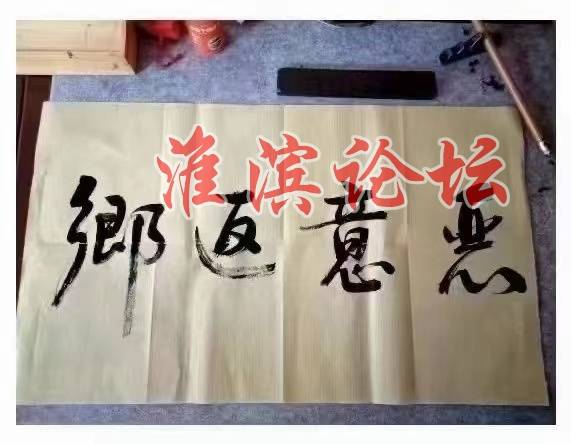 淮滨论坛
恶意返鄉